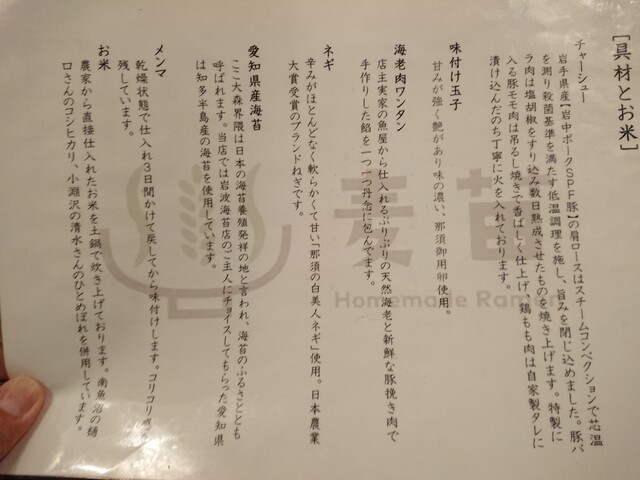 ［具材とお米］
チャーシュー
岩手県産【岩中ポークSPF豚】の肩ロースはスチームコンベクションで芯温
を測り殺菌基準を満たす低温調理を施し、旨みを閉じ込めました。豚バ
ラ肉は塩胡椒をすり込み数日熟成させたものを焼き上げます。特製に
入る豚モモ肉は吊るし焼きで香ばしく仕上げ、鶏もも肉は自家製タレに
漬け込んだのち丁寧に火を入れております。
味付け玉子
甘みが強く艶があり味の濃い、那須御用卵使用。
海老肉ワンタン
店主実家の魚屋から仕入れるぷりぷりの天然海老と新鮮な豚挽き肉で
手作りした餡を一つ一つ丹念に包んでます。
ネギ
辛みがほとんどなく軟らかくて甘い「那須の白美人ネギ」使用。日本農業
大賞受賞のブランドねぎです。
愛知県産海苔
ここ大森界隈は日本の海苔養殖発祥の地と言われ、海苔のふるさととも
呼ばれます。当店では岩波海苔店のご主人にチョイスしてもらった愛知県
は知多半島産の海苔を使用しています。
メンマ
乾燥状態で仕入れ3日間かけて戻してから味付けします。コリコリ感を
残しています。
お米
農家から直接仕入れたお米を土鍋で炊き上げております。南魚沼の樋
口さんのコシヒカリ、小淵沢の清水さんのひとめぼれを併用しています。
麦苗
Homemade Ramen